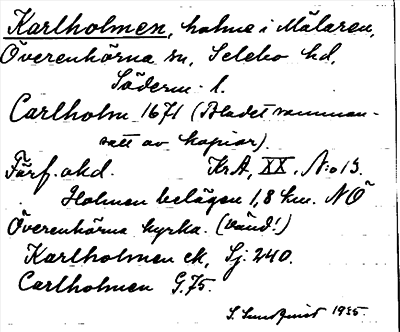 Karlholmen, holme i Mälaren,
Överenhörna sn, Selebo hd,
Söderm. l.
Carlholm 1671 (Bladet samman-
satt av kopior).
Förf. okd. Kr.A, XX, N:o 13.
Holmen belägen 1,8 km. NÖ
Överenhörna kyrka. (Vänd!)
Karlholmen ek, Sj. 240.
Carlholmen G.75.
S. Lundquist 1935.